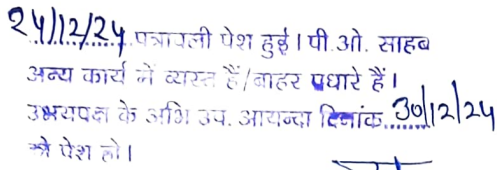 24/12/24 पत्रावली पेश हुई। पी.ओ. साहब
अन्य कार्य में व्यस्त हैं/बाहर पधारे हैं।
उभयपक्ष के अभि उप. आयन्दा दिनांक 30/12/24
को पेश हो।